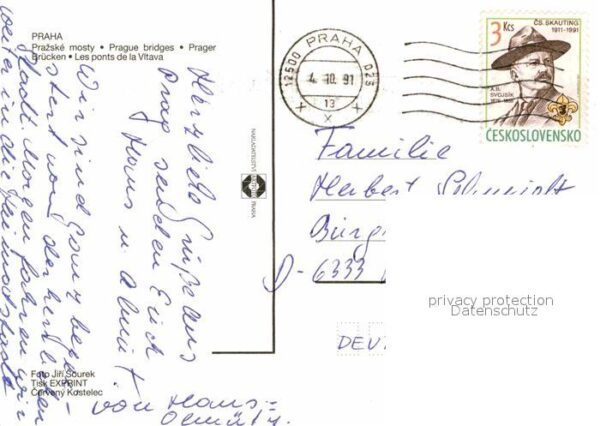 PRAHA
Pražské mosty • Prague bridges • Prager
Brücken • Les ponts de la Vltava
Herzliche Grüße aus
Prag senden Euch
Hans u.
Wir sind ganz begei-
stert von der herrlichen
Stadt. Morgen fahren wir
weiter in die Heimatstadt
von Hans =
Olmütz.
Foto Jiří Šourek
Tisk EXPRINT
Červený Kostelec
NAKLADATELSTVÍ
PRAHA
12500 PRAHA 025
4. 10. 91
13
x x x
3 Kčs
ČS. SKAUTING
1911-1991
A.B.
SVOJSÍK
ČESKOSLOVENSKO
Familie
Herbert Schmidt
Bürg
D-6333
DEU
privacy protection
Datenschutz